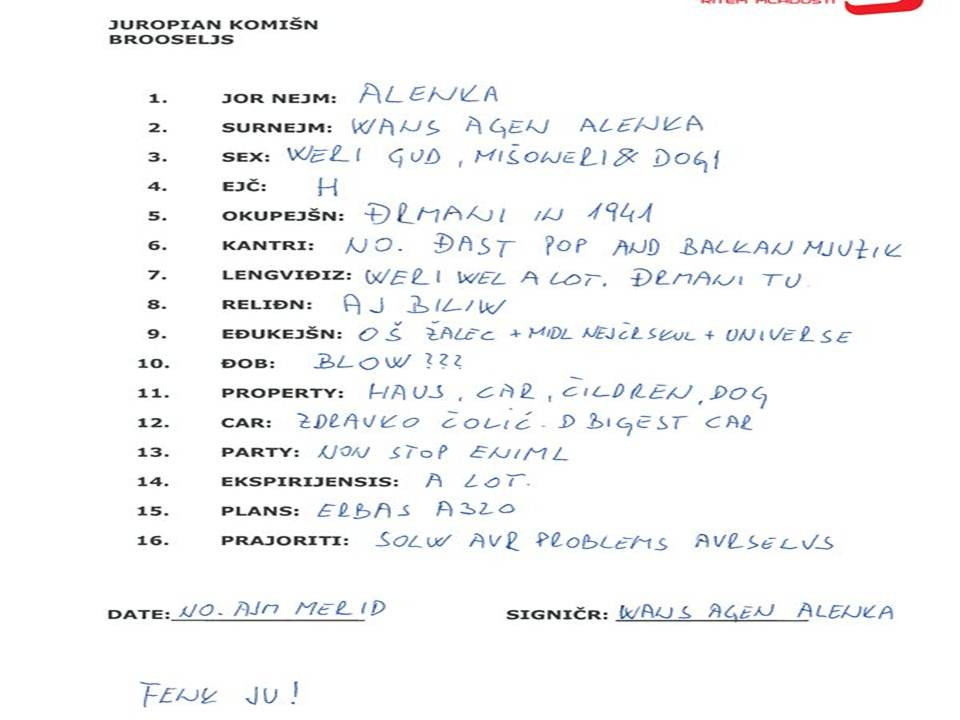 RITEM MLADOSTI
JUROPIAN KOMIŠN
BROOSELJS
1. JOR NEJM: ALENKA
2. SURNEJM: WANS AGEN ALENKA
3. SEX: WERI GUD, MIŠOWERI & DOGI
4. EJČ: H
5. OKUPEJŠN: ĐRMANI IN 1941
6. KANTRI: NO. ĐAST POP AND BALKAN MJUZIK
7. LENGVIĐIZ: WERI WEL A LOT. ĐRMANI TU.
8. RELIĐN: AJ BILIW
9. EĐUKEJŠN: OŠ ŽALEC + MIDL NEJČRSKUL + UNIVERSE
10. ĐOB: BLOW ???
11. PROPERTY: HAUS, CAR, ČILDREN, DOG
12. CAR: ZDRAVKO ČOLIĆ. D BIGEST CAR
13. PARTY: NON STOP ENIML
14. EKSPIRIJENSIS: A LOT.
15. PLANS: ERBAS A320
16. PRAJORITI: SOLW AVR PROBLEMS AVRSELVS
DATE: NO. AJM MERID SIGNIČR: WANS AGEN ALENKA
FENK JU!